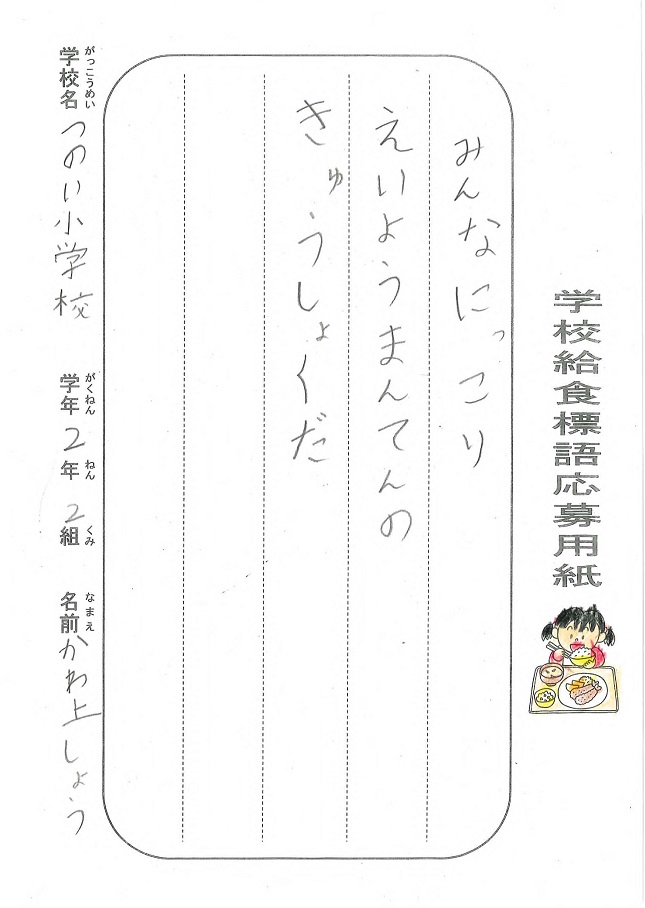 学校給食標語応募用紙
みんなにっこり
えいようまんてんの
きゅうしょくだ
学校名 つのい小学校 学年 2年 2組 名前 かわ上しょう
がっこうめい がくねん ねん くみ なまえ